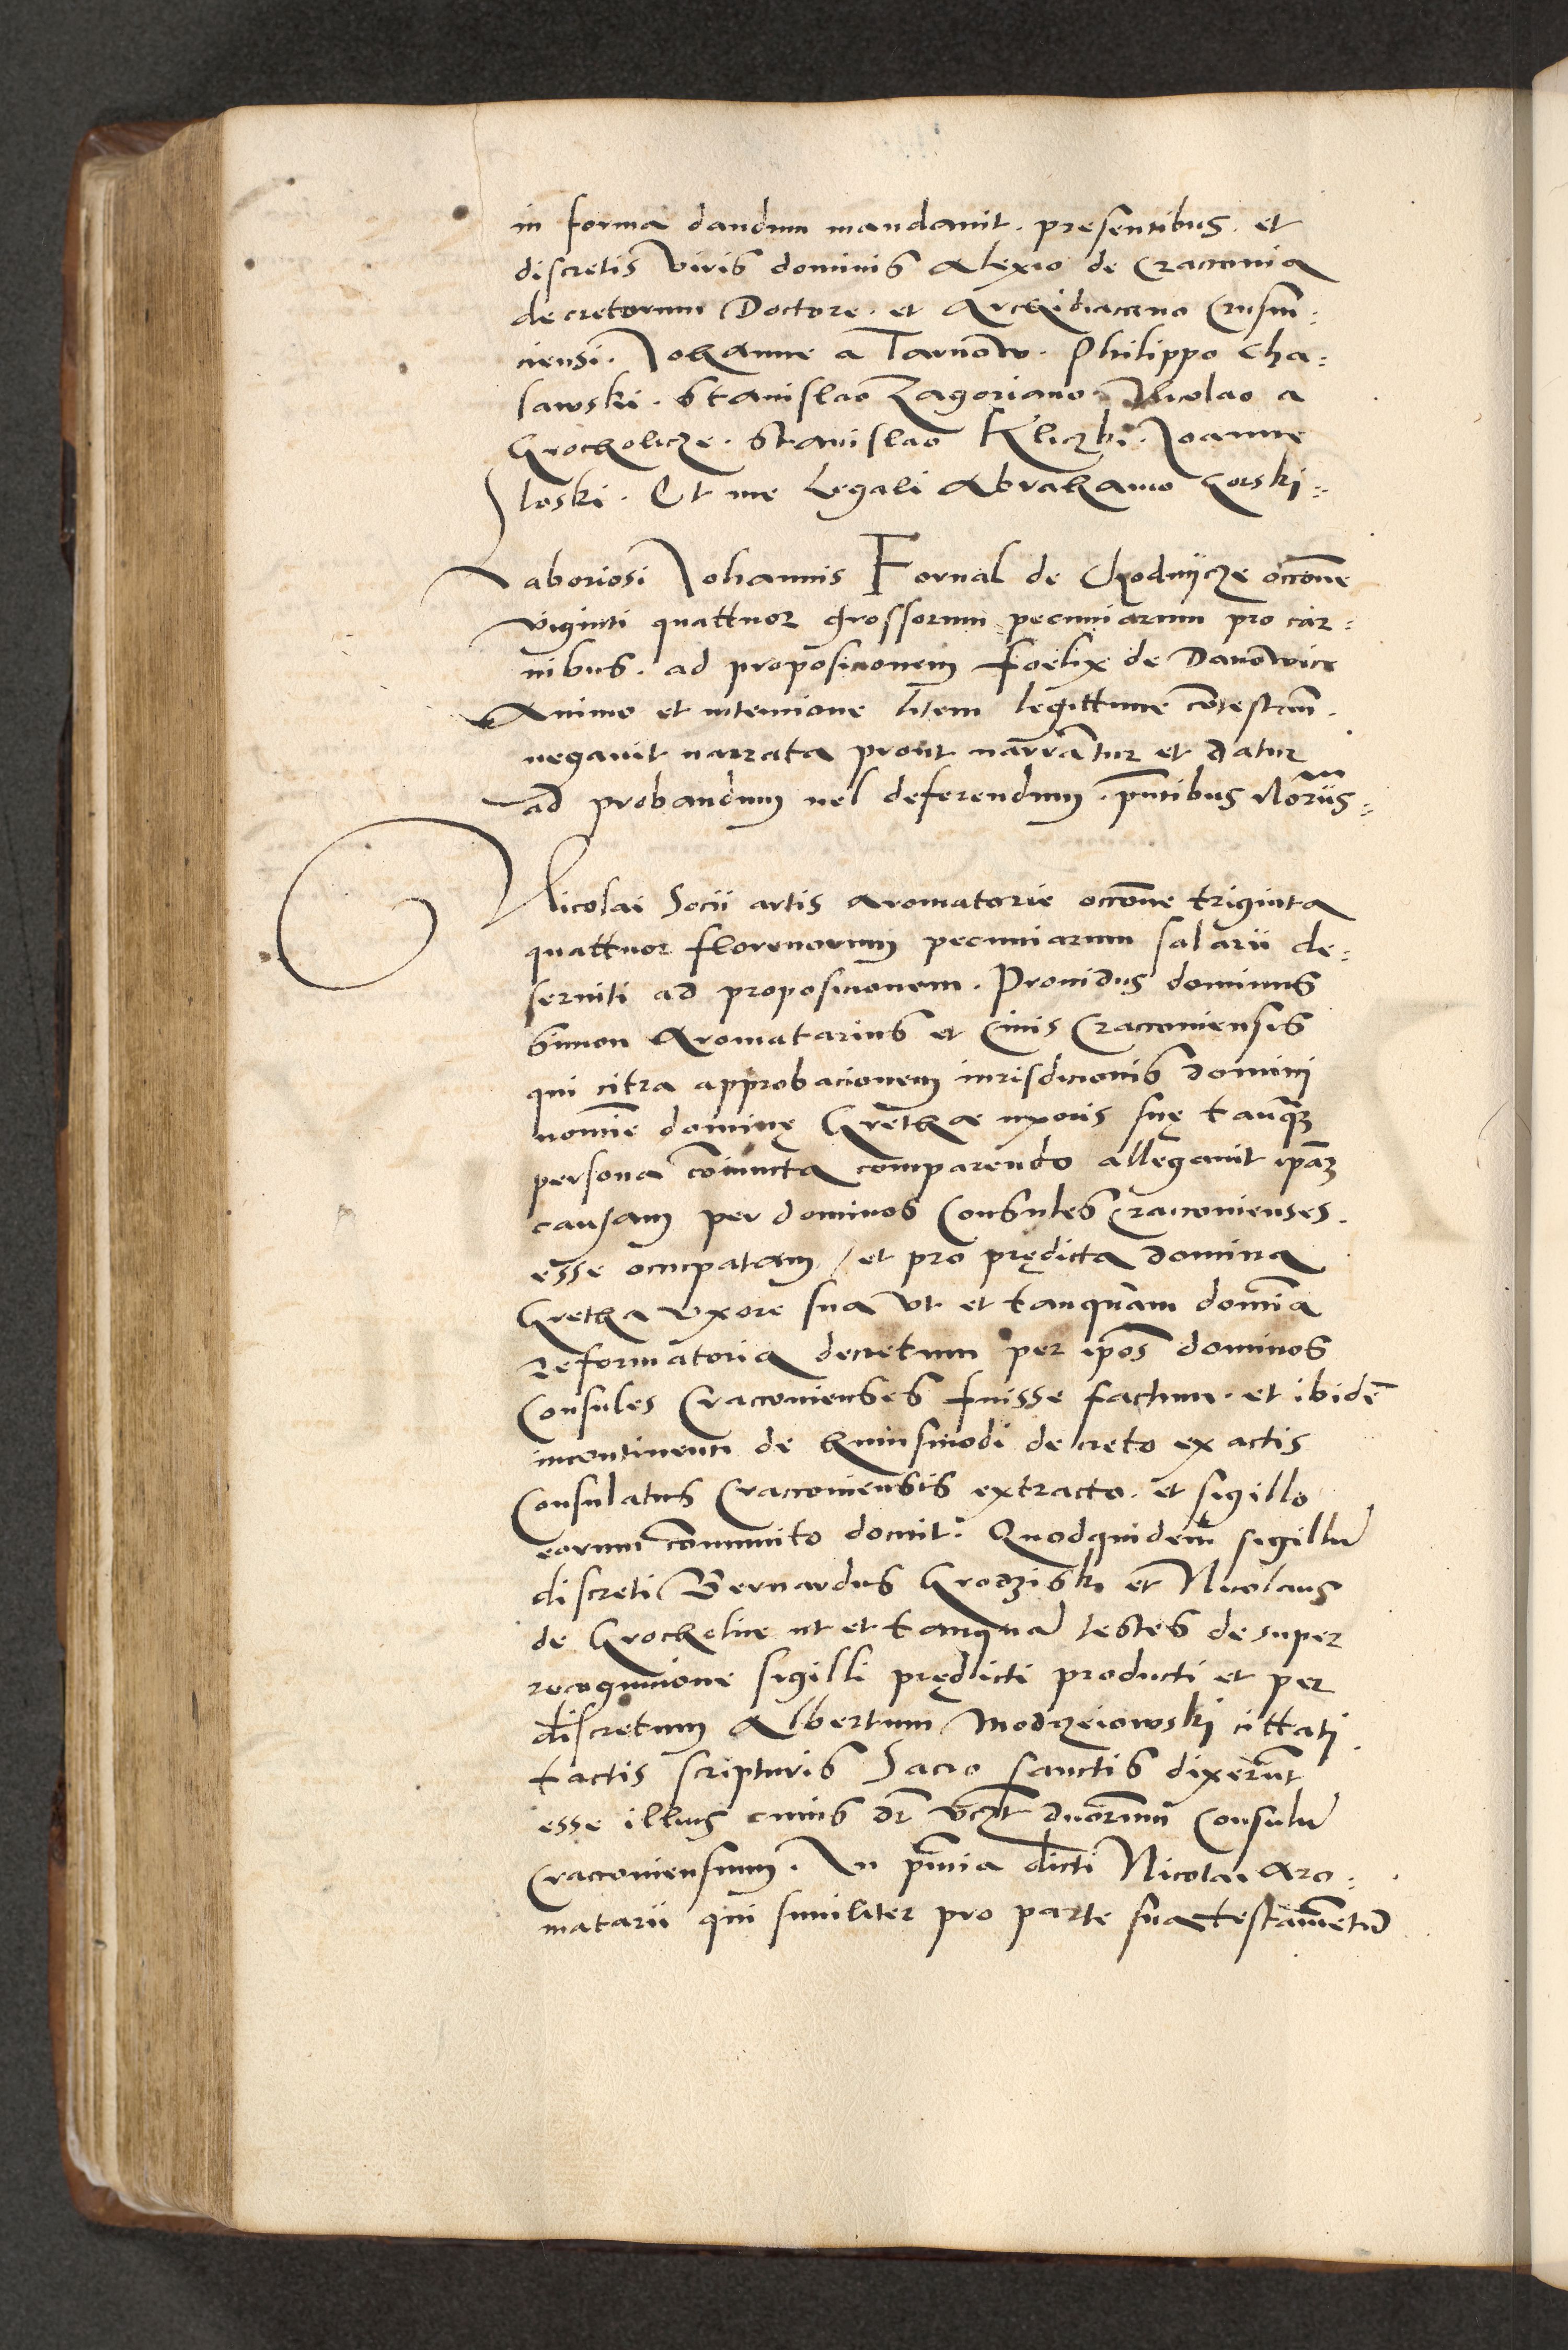 in forma dandum mandavit. presentibus. et
discretis Viris dominis Alexio de Cracovia
decretorum Doctore. et Archidiacono Crusm=
ciensi. Johanne a Tarnow. Philippo Cha=
lawski. Stanislao Zagoriano. Nicolao a
Grocholicze. Stanislao Kliczki. Joanne
Iloski. Et me Legali Abrahamo Gorski=
Laboriosi Johannis Fornal de Chodnijcze occōne
viginti quattuor grossorum pecuniarum pro car=
nibus. ad proposicionem foelix de Danowice
Animo et intencione litem legittime contestan̄.
negavit narrata prout narrātur et datur
ad probandum uel deferendum. pn̄tibus Norīis=
Nicolai Socii artis aromatarie occōne triginta
quattuor florenorum pecuniarum salarii de=
serviti ad proposicionem. Providus dominus
Simon Aromatarius et Civis Cracoviensis
qui citra approbacionem iurisdicionis domini
nomīe dominę Grethæ uxoris suę tanqꝫ
persona coniuncta comparendo allegavit ipāꝫ
causam per dominos Consules Cracovienses.
esse occupatam / et pro prędicta domina
Gretha uxore sua ut et tanquam domīa
reformatoria decretum per ip̄os dominos
Consules Cracovienses fuisse factum. et ibidē
incontinenti de huiusmodi decreto ex actis
Consulatus Cracoviensis extracto. et sigillo
eorum cōmunito docuit. Quodquidem sigillū
discreti Bernardus Grodziski et Nicolaus
de Grocholice ut et tanquā testes de super
recognicione sigilli prędicti producti et per
discretum Albertum Modrzeiowski cittati
tactis scripturis Sacro sanctis dixerunt
esse illius cuius dr̄ vcꝫt dnorum Consulū
Cracoviensium. In pn̄tia dicti Nicolai Aro=
matarii qui similiter pro parte sua testamētū